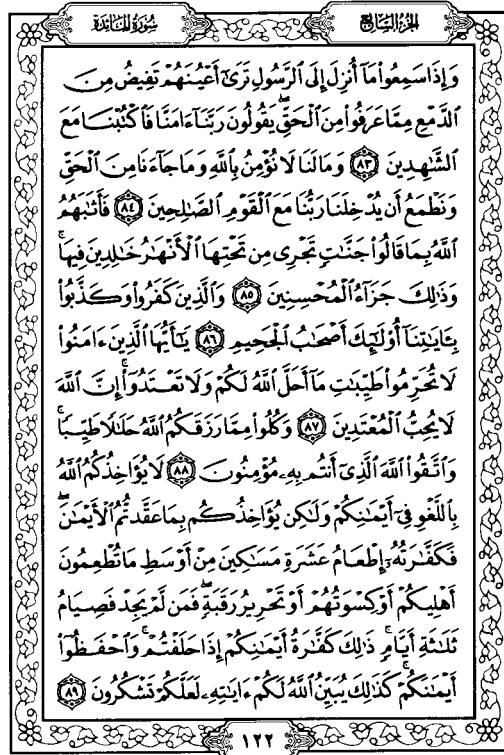 سُورَةُ المَائدة
الجزءُ السَّابِع
وَإِذَا سَمِعُوا۟ مَآ أُنزِلَ إِلَى ٱلرَّسُولِ تَرَىٰٓ أَعْيُنَهُمْ تَفِيضُ مِنَ
ٱلدَّمْعِ مِمَّا عَرَفُوا۟ مِنَ ٱلْحَقِّ ۖ يَقُولُونَ رَبَّنَآ ءَامَنَّا فَٱكْتُبْنَا مَعَ
ٱلشَّٰهِدِينَ ٨٣ وَمَا لَنَا لَا نُؤْمِنُ بِٱللَّهِ وَمَا جَآءَنَا مِنَ ٱلْحَقِّ
وَنَطْمَعُ أَن يُدْخِلَنَا رَبُّنَا مَعَ ٱلْقَوْمِ ٱلصَّٰلِحِينَ ٨٤ فَأَثَٰبَهُمُ
ٱللَّهُ بِمَا قَالُوا۟ جَنَّٰتٍ تَجْرِى مِن تَحْتِهَا ٱلْأَنْهَٰرُ خَٰلِدِينَ فِيهَا ۚ
وَذَٰلِكَ جَزَآءُ ٱلْمُحْسِنِينَ ٨٥ وَٱلَّذِينَ كَفَرُوا۟ وَكَذَّبُوا۟
بِـَٔايَٰتِنَآ أُو۟لَٰٓئِكَ أَصْحَٰبُ ٱلْجَحِيمِ ٨٦ يَٰٓأَيُّهَا ٱلَّذِينَ ءَامَنُوا۟
لَا تُحَرِّمُوا۟ طَيِّبَٰتِ مَآ أَحَلَّ ٱللَّهُ لَكُمْ وَلَا تَعْتَدُوٓا۟ ۚ إِنَّ ٱللَّهَ
لَا يُحِبُّ ٱلْمُعْتَدِينَ ٨٧ وَكُلُوا۟ مِمَّا رَزَقَكُمُ ٱللَّهُ حَلَٰلًا طَيِّبًا ۚ
وَٱتَّقُوا۟ ٱللَّهَ ٱلَّذِىٓ أَنتُم بِهِۦ مُؤْمِنُونَ ٨٨ لَا يُؤَاخِذُكُمُ ٱللَّهُ
بِٱللَّغْوِ فِىٓ أَيْمَٰنِكُمْ وَلَٰكِن يُؤَاخِذُكُم بِمَا عَقَّدتُّمُ ٱلْأَيْمَٰنَ ۖ
فَكَفَّٰرَتُهُۥٓ إِطْعَامُ عَشَرَةِ مَسَٰكِينَ مِنْ أَوْسَطِ مَا تُطْعِمُونَ
أَهْلِيكُمْ أَوْ كِسْوَتُهُمْ أَوْ تَحْرِيرُ رَقَبَةٍ ۖ فَمَن لَّمْ يَجِدْ فَصِيَامُ
ثَلَٰثَةِ أَيَّامٍ ۚ ذَٰلِكَ كَفَّٰرَةُ أَيْمَٰنِكُمْ إِذَا حَلَفْتُمْ ۚ وَٱحْفَظُوٓا۟
أَيْمَٰنَكُمْ ۚ كَذَٰلِكَ يُبَيِّنُ ٱللَّهُ لَكُمْ ءَايَٰتِهِۦ لَعَلَّكُمْ تَشْكُرُونَ ٨٩
١٢٢